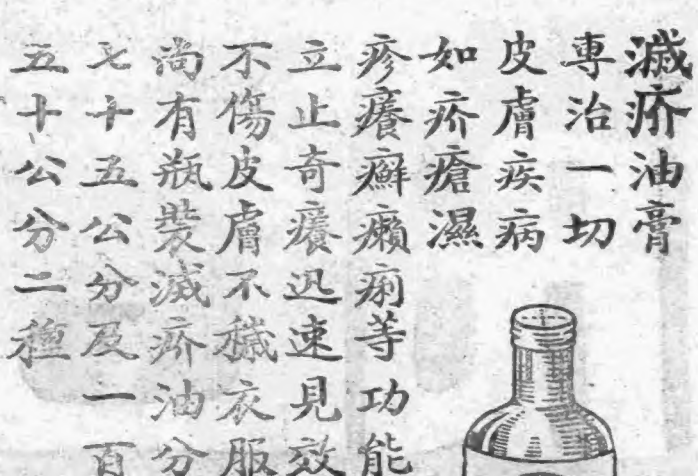 滅疥油膏
專治一切
皮膚疾病
如疥瘡濕
疹癢癬癩痢等功能
立止奇癢迅速見效
不傷皮膚不穢衣服
尚有瓶裝滅疥油分
七十五公分及一百
五十公分二種